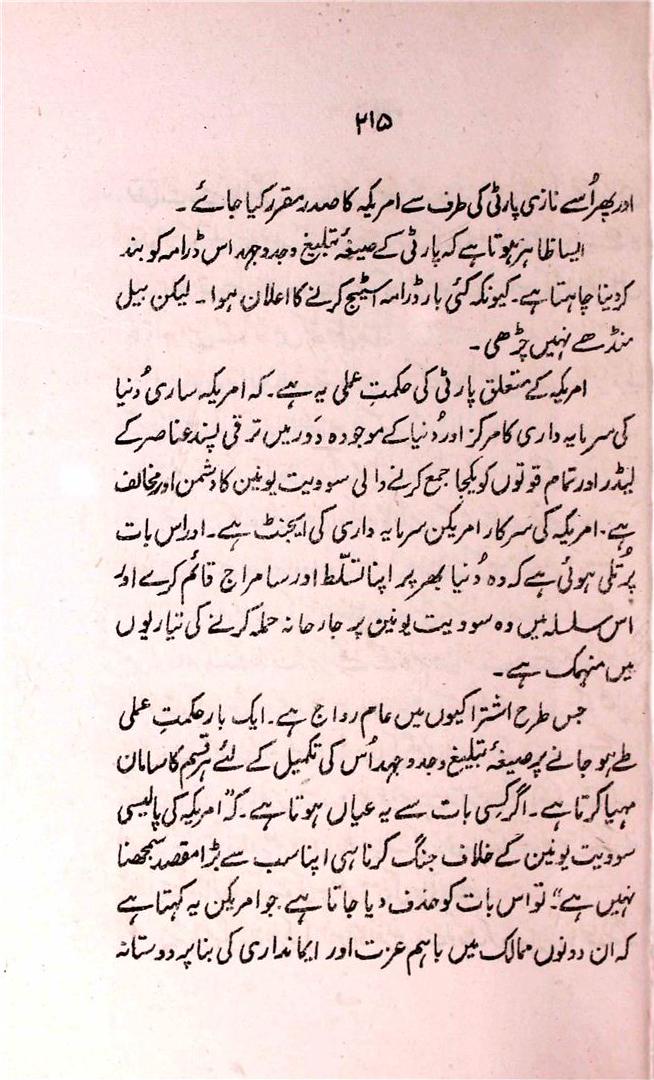 ۲۱۵
اور پھر اُسے نازی پارٹی کی طرف سے امریکہ کا صدر مقرر کیا جائے ۔
ایسا ظاہر ہوتا ہے کہ پارٹی کے صیغۂ تبلیغ و جدوجہد اس ڈرامہ کو بند
کر دینا چاہتا ہے۔ کیونکہ کئی بار ڈرامہ اسٹیج کرنے کا اعلان ہوا ۔ لیکن بیل
منڈھے نہیں چڑھی ۔
امریکہ کے متعلق پارٹی کی حکمتِ عملی یہ ہے۔ کہ امریکہ ساری دُنیا
کی سرمایہ داری کا مرکز اور دُنیا کے موجودہ دَور میں ترقی پسند عناصر کے
لیڈر اور تمام قوتوں کو یکجا جمع کرنے والی سوویت یونین کا دشمن اور مخالف
ہے۔ امریکہ کی سرکار امریکن سرمایہ داری کی ایجنٹ ہے۔ اور اس بات
پر تُلی ہوئی ہے کہ وہ دُنیا بھر پر اپنا تسلّط اور سامراج قائم کرے اور
اس سلسلہ میں وہ سوویت یونین پر جارحانہ حملہ کرنے کی تیاریوں
میں منہمک ہے ۔
جس طرح اشتراکیوں میں عام رواج ہے۔ ایک بار حکمتِ عملی
طے ہو جانے پر صیغۂ تبلیغ و جدوجہد اُس کی تکمیل کے لئے ہر قسم کا سامان
مہیا کرتا ہے ۔ اگر کسِی بات سے یہ عیاں ہوتا ہے ۔ کہ "امریکہ کی پالیسی
سوویت یونین کے خلاف جنگ کرنا ہی اپنا سب سے بڑا مقصد سمجھنا
نہیں ہے"۔ تو اس بات کو حذف دیا جاتا ہے جو امریکن یہ کہتا ہے
کہ ان دونوں ممالک میں باہم عزت اور ایمانداری کی بنا پر دوستانہ